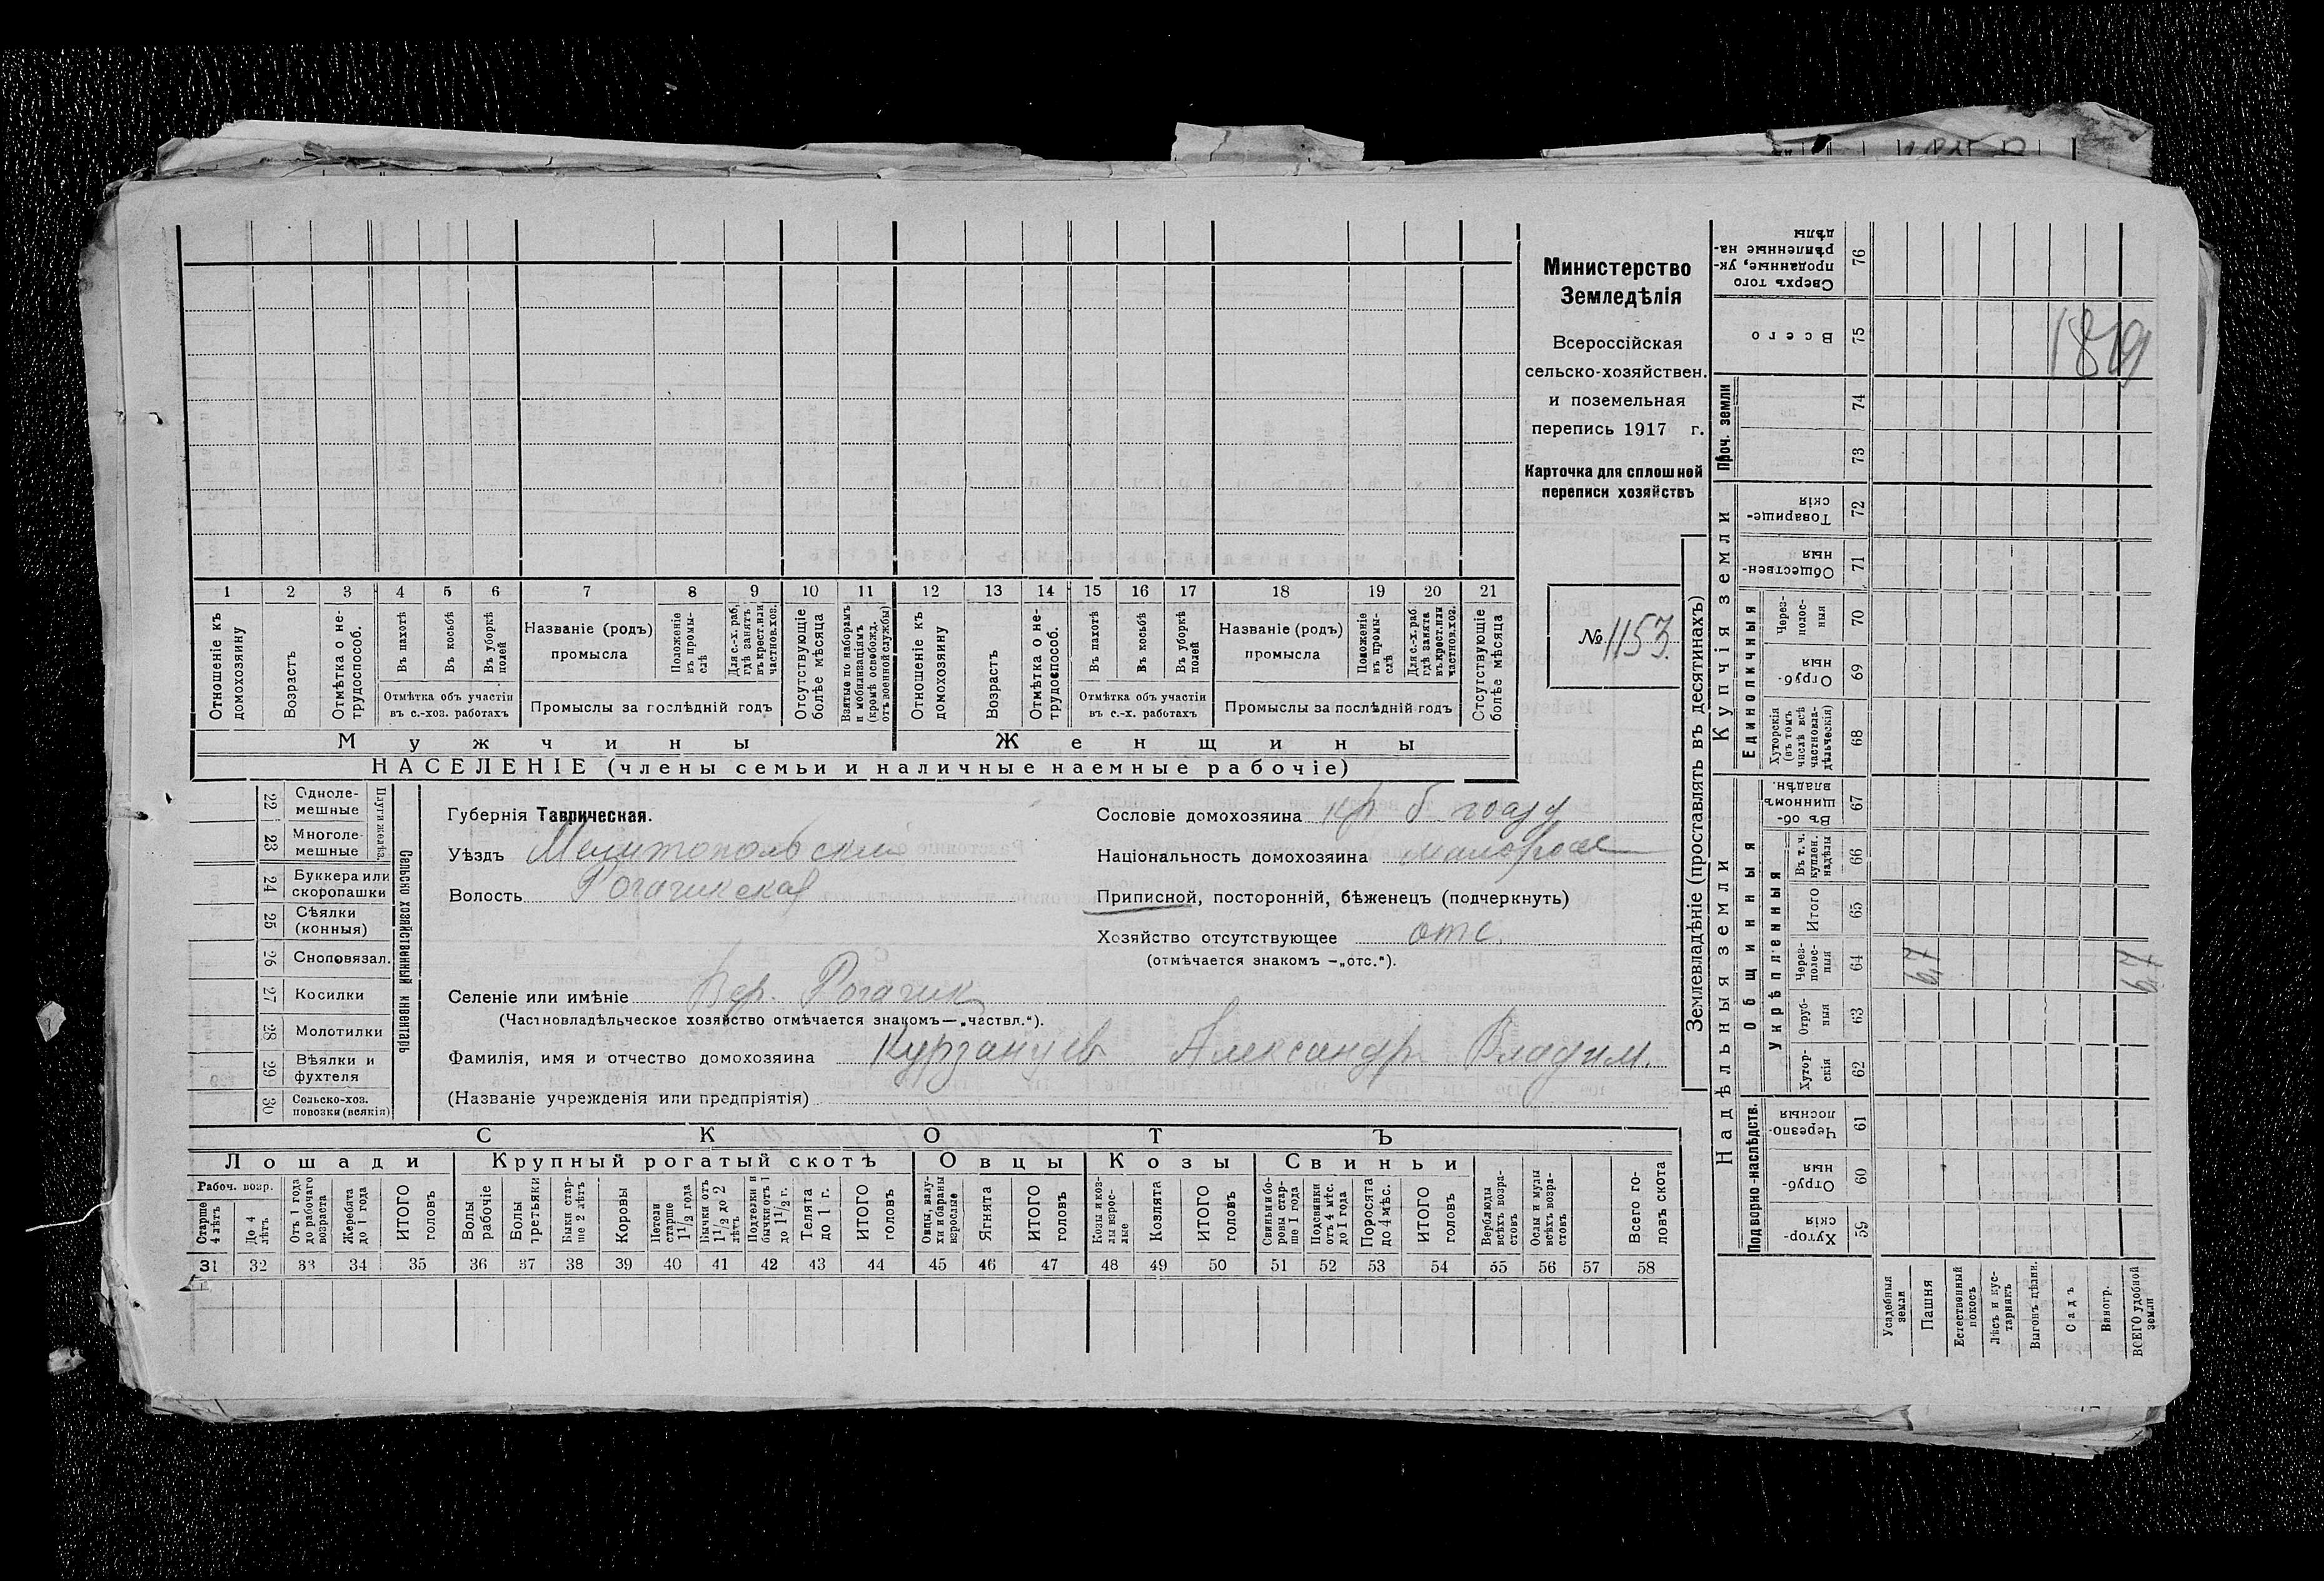 1 2 3 4 5 6 7 8 9 10 11 12 13 14 15 16 17 18 19 20 21
Отношеніе къ домохозяину
Возрастъ
Отмѣтка о не-трудоспособ.
Въ пахотѣ
Въ косьбѣ
Въ уборкѣ полей
Отмѣтка объ участіи
въ с.-хоз. работахъ
Названіе (родъ)
промысла
Положеніе въ промы-слѣ
Для с.-х. раб, гдѣ занятъ въ крест. или частнов. хоз.
Промыслы за послѣдній годъ
Отсутствующіе болѣе мѣсяца
Взятые по наборамъ и мобилизаціямъ (кромѣ освобожд. отъ военной службы)
Отношеніе къ домохозяину
Возрастъ
Отмѣтка о не-трудоспособ.
Въ пахотѣ
Въ косьбѣ
Въ уборкѣ полей
Отмѣтка объ участіи
въ с.-х. работахъ
Названіе (родъ)
промысла
Положеніе въ промы-слѣ
Для с.-х. раб гдѣ занята въ крест. или частнов. хоз.
Промыслы за послѣдній годъ
Отсутствующіе болѣе мѣсяца
Мужчины Женщины
НАСЕЛЕНІЕ (члены семьи и наличные наемные рабочіе)
Министерство
Земледѣлія
Всероссійская
сельско-хозяйствен.
и поземельная
перепись 1917 г.
Карточка для сплошной
переписи хозяйствъ
№ 1153.
Сельско хозяйственный инвентарь
Плуги желѣз.
22 Одноле-мешные
23 Многоле-мешные
24 Буккера или скоропашки
25 Сѣялки (конныя)
26 Сноповязал.
27 Косилки
28 Молотилки
29 Вѣялки и фухтеля
30 Сельско-хоз. повозки (всякія)
Губернія Таврическая.
Уѣздъ Мелитопольский
Волость Рогачикская
Селеніе или имѣніе Вер. Рогачик
(Частновладѣльческое хозяйство отмѣчается знакомъ—„частвл.“).
Фамилія, имя и отчество домохозяина Курзанцев Александр Владим.
(Названіе учрежденія или предпріятія)
Сословіе домохозяина кр б
Національность домохозяина малоросс
Приписной, посторонній, бѣженецъ (подчеркнуть)
Хозяйство отсутствующее отс.
(отмѣчается знакомъ —„отс.“).
СКОТЪ
Лошади Крупный рогатый скотъ Овцы Козы Свиньи
Рабоч. возр.
Старше 4 лѣтъ
До 4 лѣтъ
Отъ 1 года до рабочаго возраста
Жеребята до 1 года
ИТОГО головъ
Волы рабочіе
Волы третьяки
Быки стар-ше 2 лѣтъ
Коровы
Нетели старше 1 1/2 года
Бычки отъ 1 1/2 до 2 лѣтъ
Подтелки и бычки отъ 1 до 1 1/2 г.
Телята до 1 г.
ИТОГО головъ
Овцы, валу-хи и бараны взрослые
Ягнята
ИТОГО головъ
Козы и коз-лы взрос-лые
Козлята
ИТОГО головъ
Свиньи и бо-ровы стар-ше 1 года
Подсвинки отъ 4 мѣс. до 1 года
Поросята до 4 мѣс.
ИТОГО головъ
Верблюды всѣхъ возра-стовъ
Ослы и мулы всѣхъ возра-стовъ
Всего го-ловъ скота
31 32 33 34 35 36 37 38 39 40 41 42 43 44 45 46 47 48 49 50 51 52 53 54 55 56 57 58
Землевладѣніе (проставлять въ десятинахъ)
Надѣльныя земли
Купчія земли
Проч. земли
Подворно-наслѣдств.
Общинныя
Укрѣпленныя
Единоличныя
59 Хутор-скія
60 Отруб-ныя
61 Черезпо-лосныя
62 Хутор-скія
63 Отруб-ныя
64 Через-полос-ныя
65 Итого
66 Въ т. ч. куплен. надѣлы
67 Въ об-щинномъ владѣн.
68 Хуторскія (въ томъ числѣ всѣ частновла-дѣльческія)
69 Отруб-ныя
70 Через-полос-ныя
71 Обществен-ныя
72 Товарище-скія
73
74
75 Всего
76 Сверхъ того проданные, ук-рѣпленные на-дѣлы
Усадебныя земли
Пашня
Естественный покосъ
Лѣсъ и кус-тарникъ
Выгонъ цѣлин.
Садъ
Виногр.
ВСЕГО удобной земли
6,7
6,7
1819